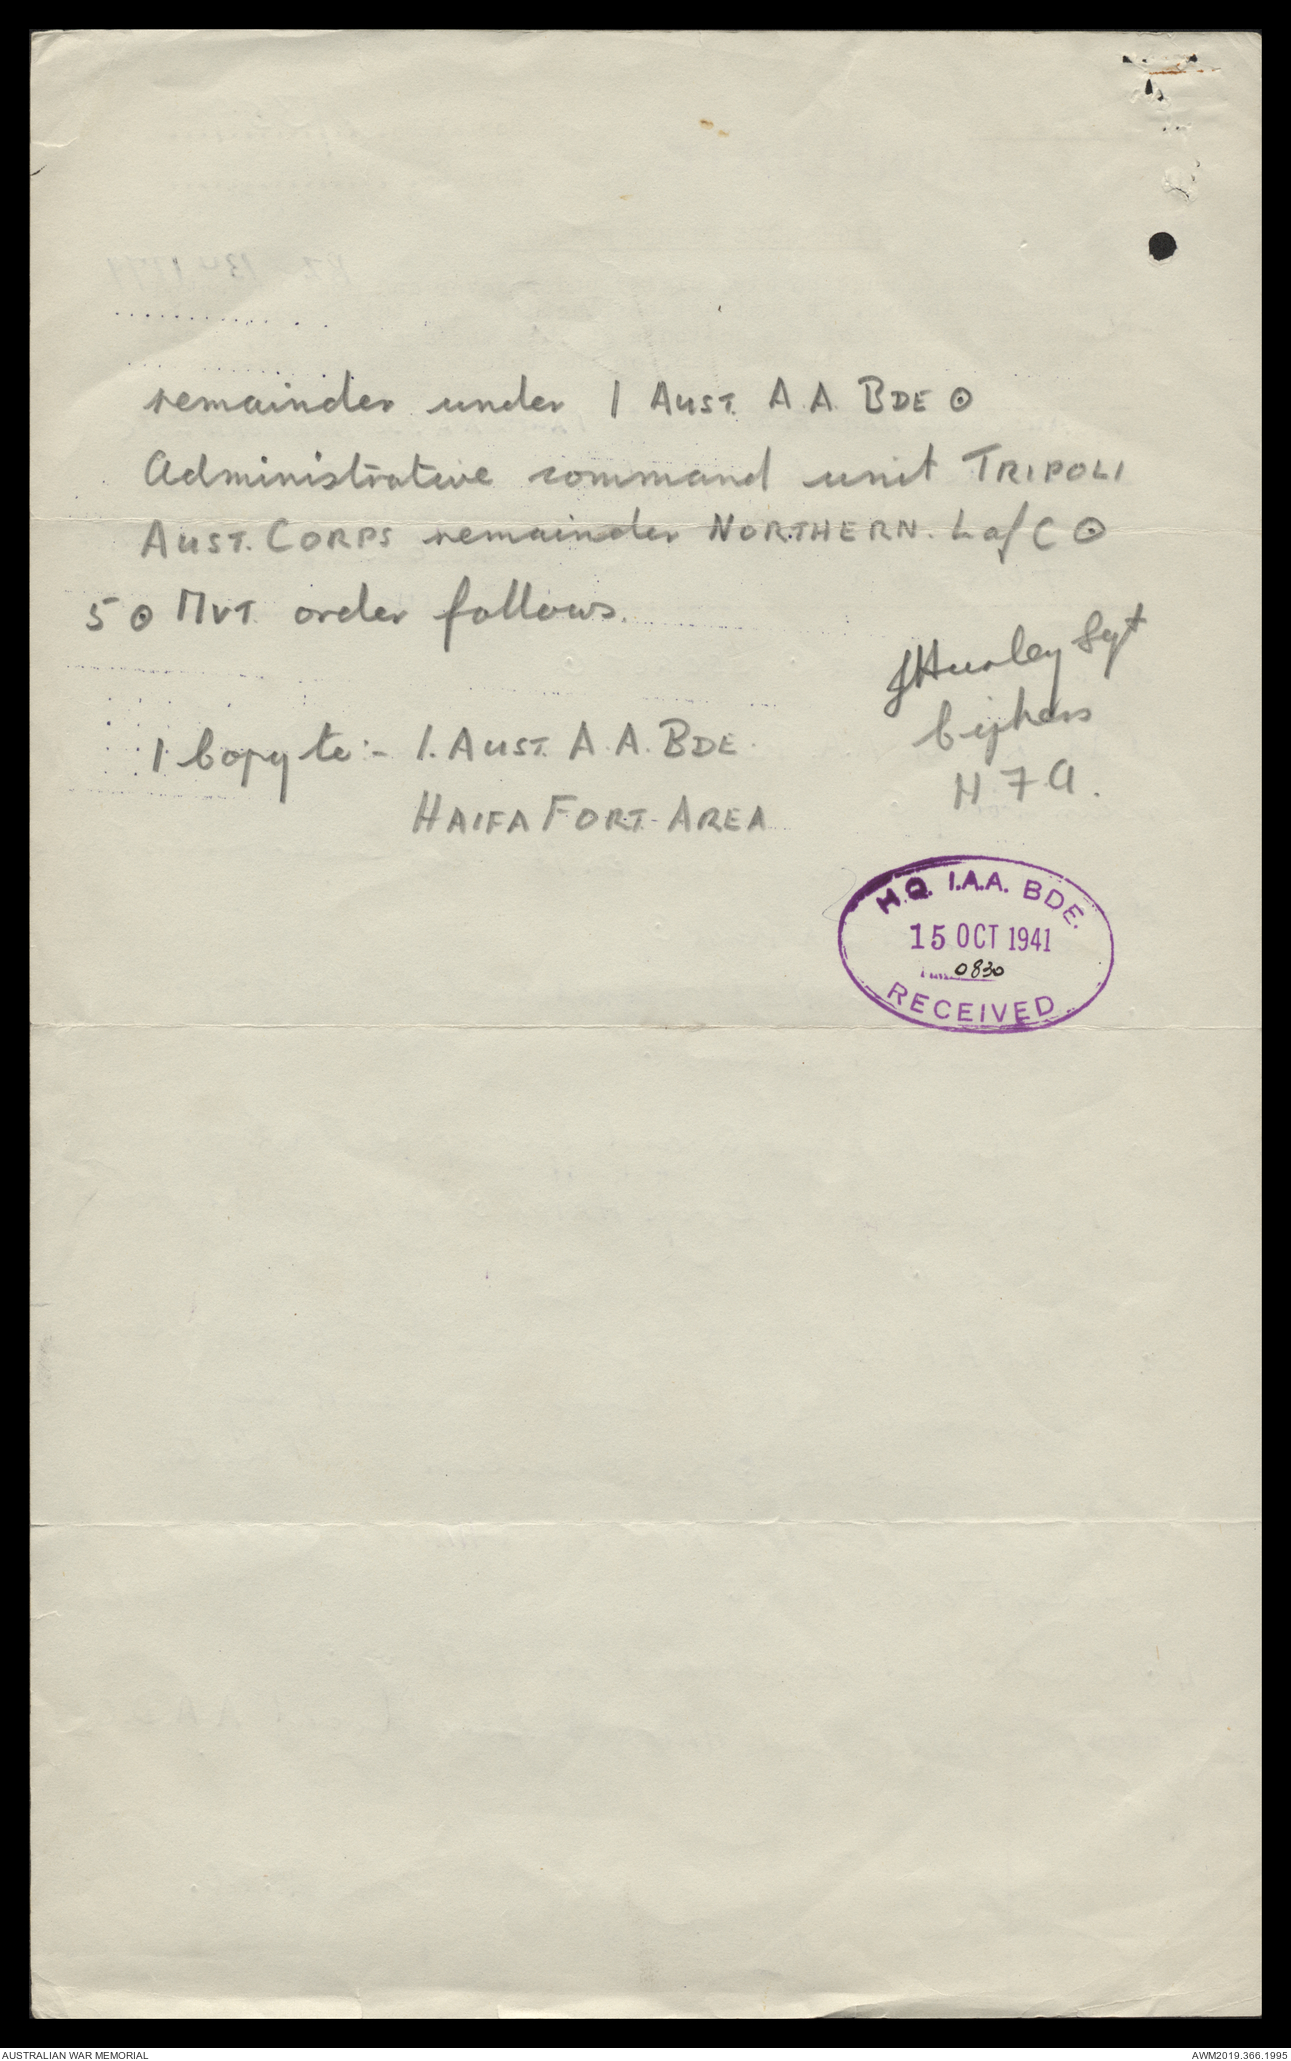 remainder under 1 AUST. A.A. BDE ⊙
Administrative command unit TRIPOLI
AUST. CORPS remainder NORTHERN. L of C ⊙
5 ⊙ MVT. order follows.
JHurley Sgt
Ciphers
H.F.A.
1 Copy to:- 1. AUST. A.A. BDE.
HAIFA FORT. AREA
H.Q. 1.A.A. BDE.
15 OCT 1941
0830
RECEIVED
AUSTRALIAN WAR MEMORIAL
AWM2019.366.1995